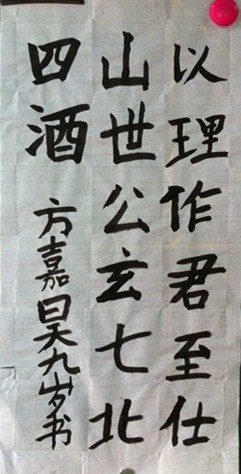 以理作君至仕
山世公玄七北
四酒
方嘉昊九岁书